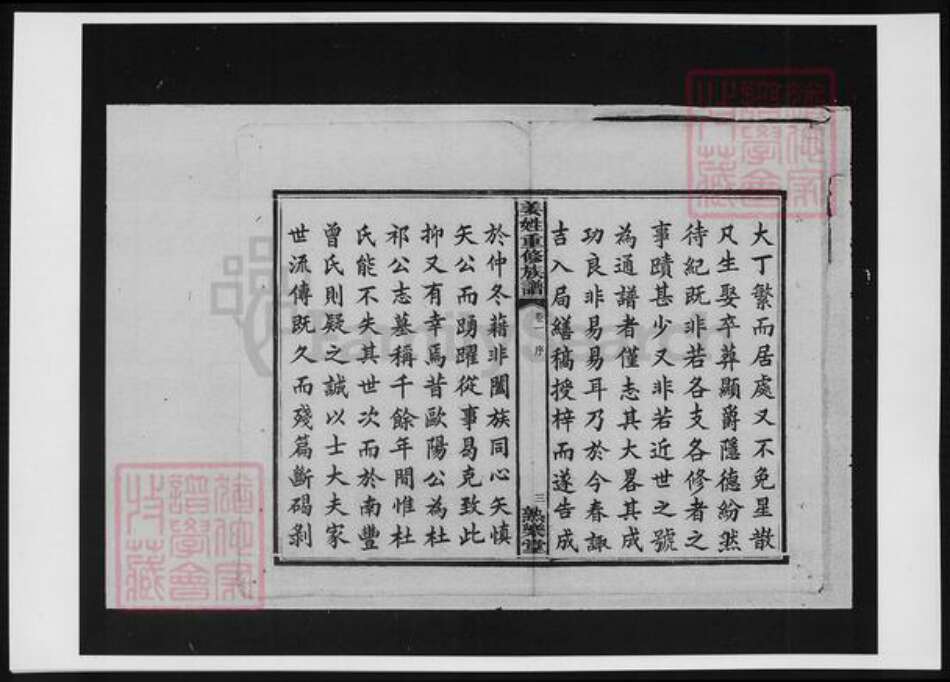 大丁繁而居處又不免星散
凡生娶卒葬顯爵隱德紛然
待紀既非若各支各修者之
事蹟甚少又非若近世之號
為通譜者僅志其大畧其成
功良非易易耳乃於今春諏
吉入局繕稿授梓而遂告成
姜姓重修族譜
卷一 序
三
於仲冬藉非闔族同心矢慎
矢公而踴躍從事曷克致此
抑又有幸焉昔歐陽公為杜
祁公志墓稱千餘年間惟杜
氏能不失其世次而於南豐
曾氏則疑之誠以士大夫家
世流傳既久而殘篇斷碣剝
FamilySearch